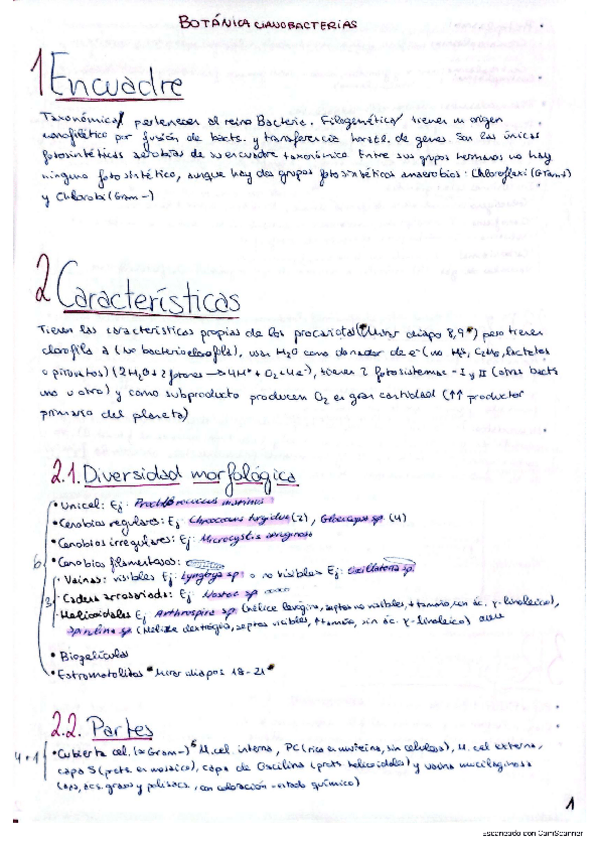 BOTÁNICA CIANOBACTERIAS
1 Encuadre
Taxonómica/ pertenecen al reino Bacteria. Filogenética/ tienen un origen
monofilético por fusión de bacts. y transferencia horztl. de genes. Son las únicas
fotosintéticas aerobias de su encuadre taxonómico. Entre sus grupos hermanos no hay
ninguno fotosintético, aunque hay dos grupos fotosintéticos anaerobios: Chloroflexi (Gram+)
y Chlorobi (Gram-)
2 Características
Tienen las características propias de los procariotas (*Mirar diapo 8,9*) pero tienen
clorofila a (no bacterioclorofila), usan H2O como donador de e- (no H2S, lactatos
o piruvatos) (2H2O + 2 fotones → 4H+ + O2 + 4e-), tienen 2 fotosistemas - I y II (otras bacts
uno u otro) y como subproducto producen O2 en gran cantidad (↑↑ productor
primario del planeta)
2.1. Diversidad morfológica
• Unicel: Ej: Prochlorococcus marinus
• Cenobios regulares: Ej: Chroococcus turgidus (2), Gloeocapsa sp. (4)
• Cenobios irregulares: Ej: Microcystis aeruginosa
6 • Cenobios filamentosos:
· Vainas: visibles Ej: Lyngbya sp o no visibles Ej: Oscillatoria sp.
3 · Cadena arrosariada: Ej: Nostoc sp
· Helicoidales Ej: Arthrospira sp (hélice levógira, septos no visibles, + tamaño, sin ác. γ-linoleico),
Spirulina sp (Hélice dextrógira, septos visibles, ↑ tamaño, sin ác. γ-linoleico)
• Biopelículas
• Estromatolitos *Mirar diapos 18-21*
2.2. Partes
4+1 • Cubierta cel. (≈ Gram-) M. cel. interna, PC (rica en mureína, sin celulosa), M. cel externa,
capa S (prots. en mosaico), capa de Oscilina (prots helicoidales) y vaina mucilaginosa
(ács. grasos y polisacs., con coloración - estado químico)
1
Escaneado con CamScanner